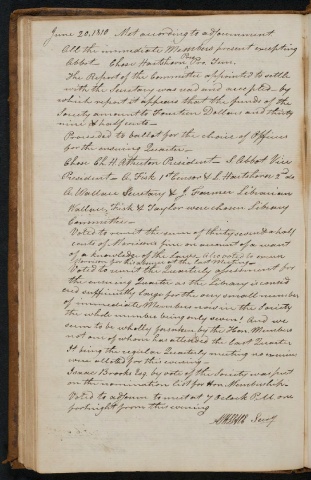 June 20, 1810 Met according to adjournment
All the immediate Members present excepting
Abbot Chose Hartshorn Pres Pro. Tem.
The Report of the Committee appointed to settle
with the Secretary was read and accepted — by
which report it appears that the funds of the
Society amount to Fourteen Dollars and thirty
nine & half cents —
Proceeded to ballot for the choice of Officers
for the ensuing Quarter —
Chose Ch. H. Atherton President — S. Abbot Vice
President — A. Fisk 1st Censor & L. Hartshorn 2nd do
A. Wallace Secretary & J. Farmer Librarian
Wallace, Fisk & Taylor were chosen Library
Committee —
Voted to remit the sum of thirty seven & a half
cents of fine on account of a want
of a knowledge of the
Voted to remit the Quarterly assessment for
the ensuing Quarter as the Library is consid
ered sufficiently large for the very small number
of immediate Members now in the Society
the whole number being only seven! And we
seem to be wholly forsaken by the Hon. Members
not one of whom has attended the last Quarter
It being the regular Quarterly meeting no exercises
were allotted for this evening —
Isaac Brooks Esq. by vote of the Society was put
on the nomination list for Hon. Membership —
Voted to adjourn to meet at 7 oClock P.M. one
fortnight from this evening
Secy